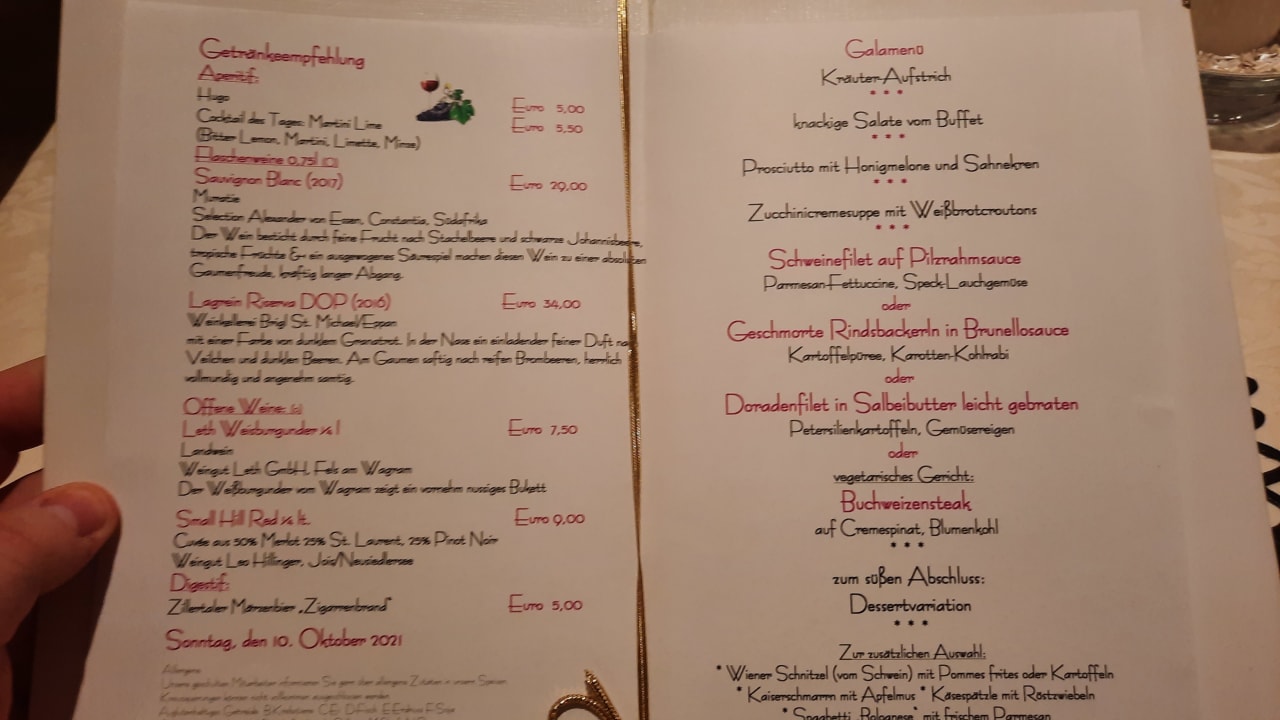 Getränkeempfehlung
Aperitif:
Hugo Euro 5,00
Cocktail des Tages: Martini Lime Euro 5,50
(Bitter Lemon, Martini, Limette, Minze)
Flaschenweine 0,75l (O)
Sauvignon Blanc (2017) Euro 29,00
Muratie
Selection Alexander von Essen, Constantia, Südafrika
Der Wein besticht durch feine Frucht nach Stachelbeere und schwarze Johannisbeere,
tropische Früchte & ein ausgewogenes Säurespiel machen diesen Wein zu einer absoluten
Gaumenfreude, kräftig langer Abgang.
Lagrein Riserva DOP (2016) Euro 34,00
Weinkellerei Brigl St. Michael/Eppan
mit einer Farbe von dunklem Granatrot. In der Nase ein einladender feiner Duft
Veilchen und dunklen Beeren. Am Gaumen saftig nach reifen Brombeeren, herrlich
vollmundig und angenehm samtig.
Offene Weine:
Leth Weisburgunder ¼ l Euro 7,50
Landwein
Weingut Leth GmbH. Fels am Wagram
Der Weißburgunder vom Wagram zeigt ein vornehm nussiges Bukett
Small Hill Red ¼ lt. Euro 9,00
Cuvée aus 50% Merlot 25% St. Laurent, 25% Pinot Noir
Weingut Leo Hillinger, Jois/Neusiedlersee
Digestif:
Zillertaler Märzenbier „Zigarrenbrand“ Euro 5,00
Sonntag, den 10. Oktober 2021
Allergene
Unsere geschulten Mitarbeiter informieren Sie gerne über allergene Zutaten in unseren Speisen.
Kreuzkontaminationen können nicht vollkommen ausgeschlossen werden.
Galamenü
Kräuter-Aufstrich
* * *
knackige Salate vom Buffet
* * *
Prosciutto mit Honigmelone und Sahnekren
* * *
Zucchinicremesuppe mit Weißbrotcroutons
* * *
Schweinefilet auf Pilzrahmsauce
Parmesan-Fettuccine, Speck-Lauchgemüse
oder
Geschmorte Rindsbackerln in Brunellosauce
Kartoffelpüree, Karotten-Kohlrabi
oder
Doradenfilet in Salbeibutter leicht gebraten
Petersilienkartoffeln, Gemüsereigen
oder
vegetarisches Gericht:
Buchweizensteak
auf Cremespinat, Blumenkohl
* * *
zum süßen Abschluss:
Dessertvariation
* * *
Zur zusätzlichen Auswahl:
* Wiener Schnitzel (vom Schwein) mit Pommes frites oder Kartoffeln
* Kaiserschmarrn mit Apfelmus * Käsespätzle mit Röstzwiebeln
* Spaghetti „Bolognese“ mit frischem Parmesan